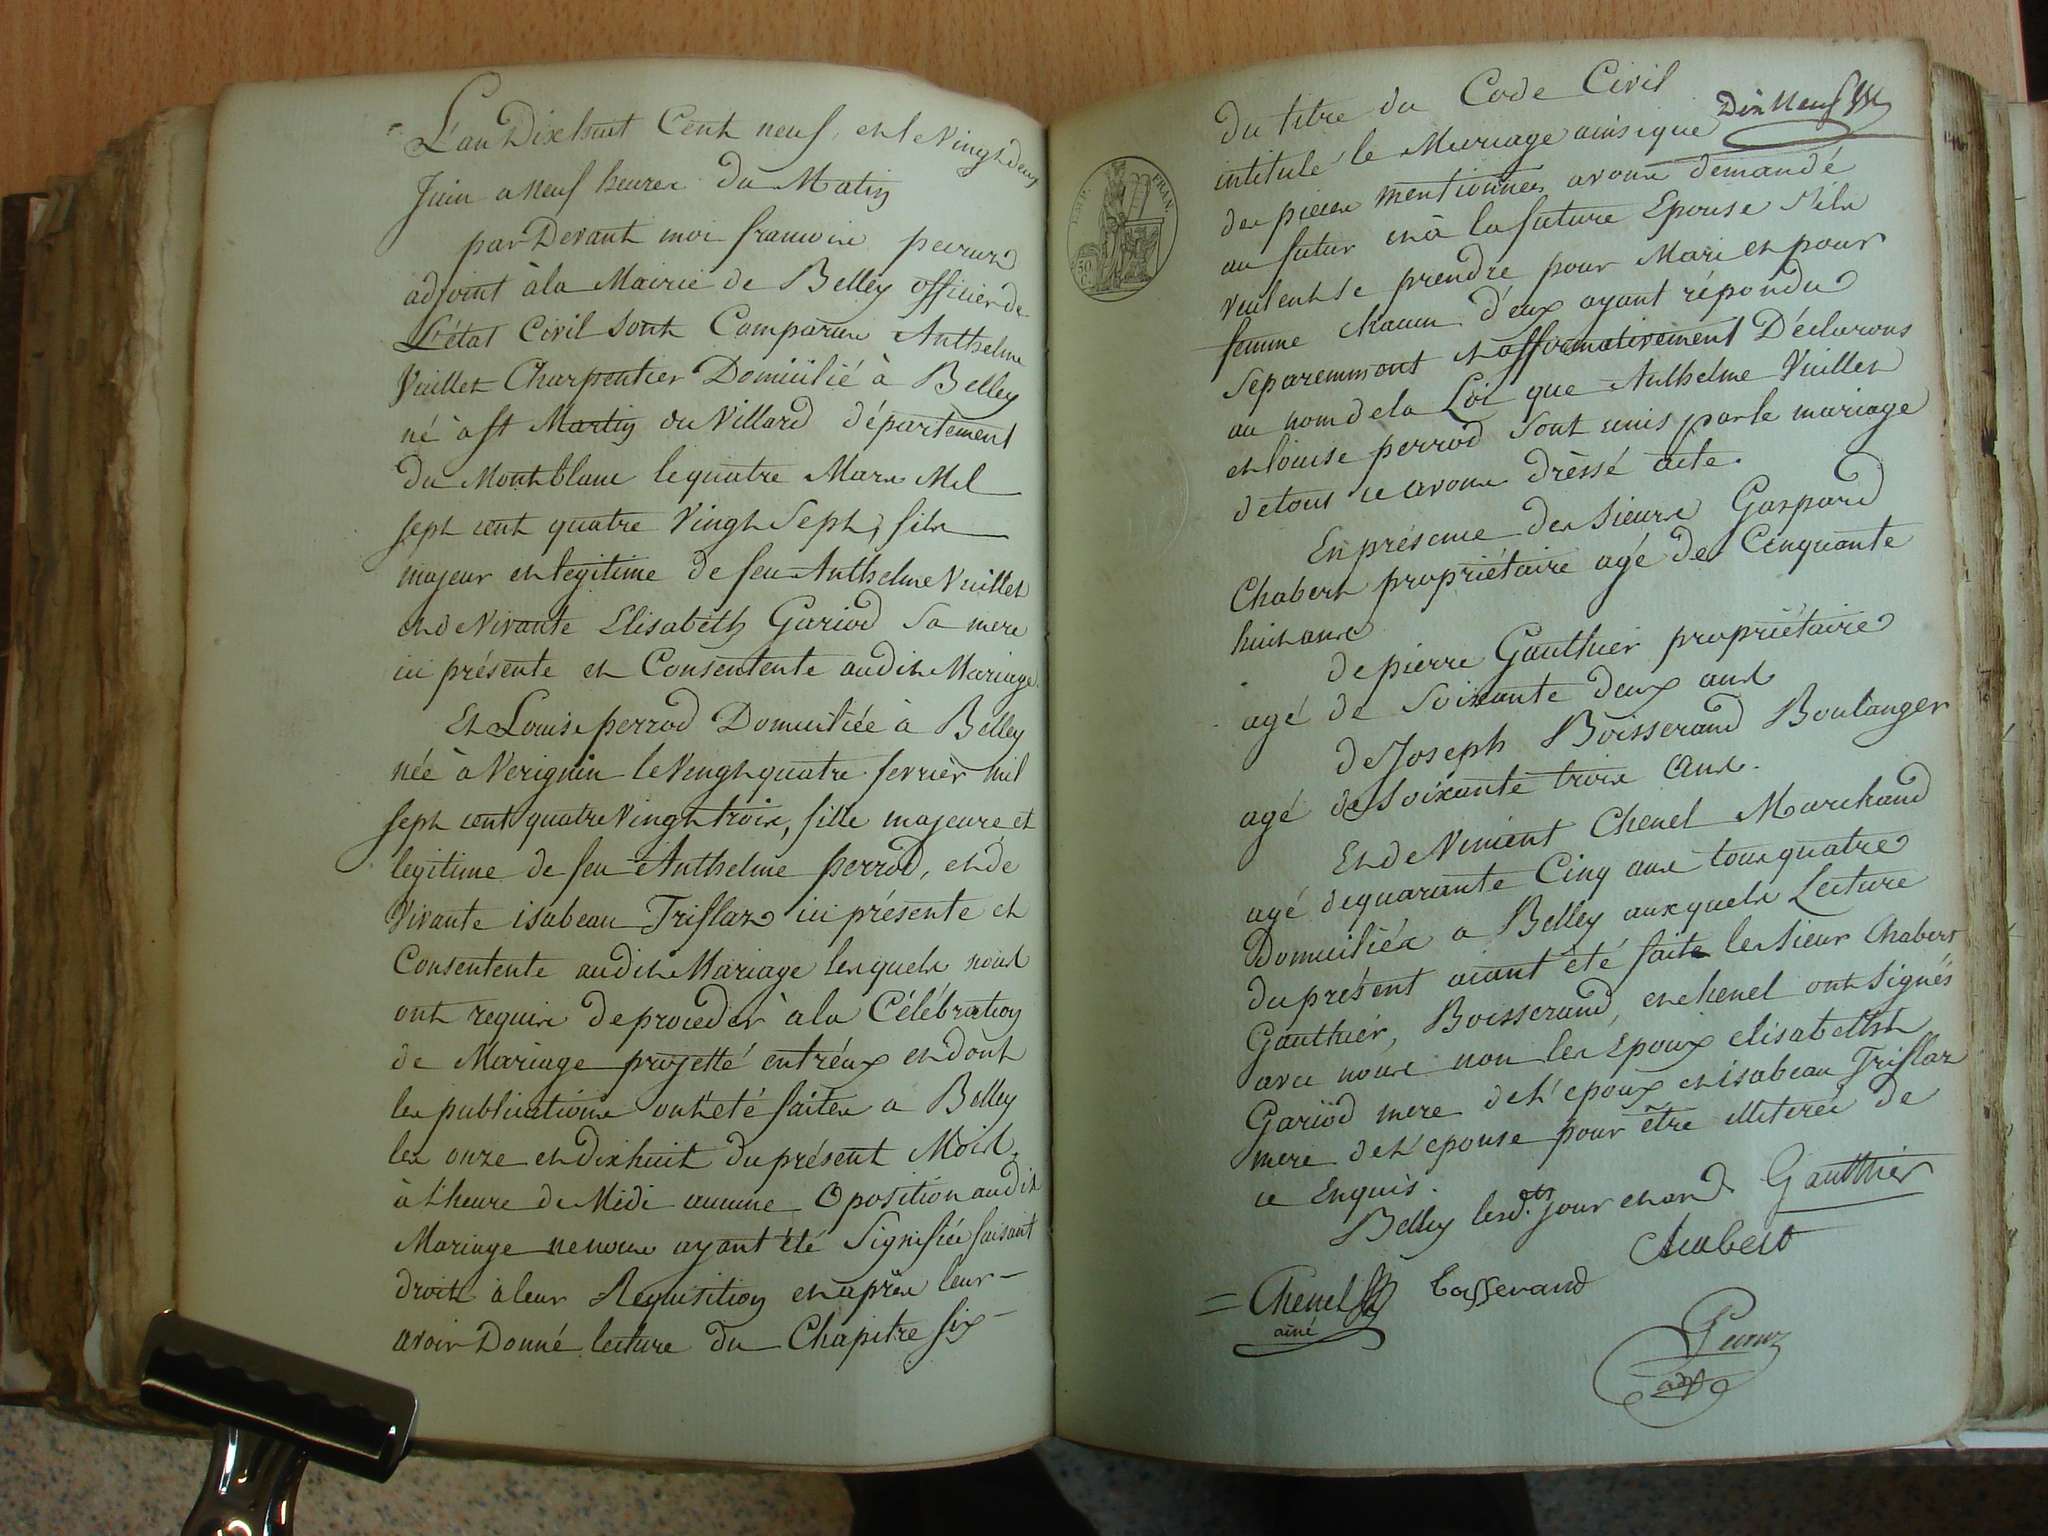 L'an Dixhuit Cent neuf, et le Vingt deux
Juin a neuf heures du Matin
par Devant moi francois peirus
adjoint à la Mairie de Belley officier de
L'état Civil sont Comparus Anthelme
Vuillet Charpentier Domicilié à Belley
né a st Martin du Villard département
du Montblanc le quatre Mars Mil
sept cent quatre Vingt Sept, fils
majeur et legitime de feu Anthelme Vuillet
et de Vivante Elisabeth Gariod sa mere
ici présente et Consentente audit Mariage.
Et Louise perrod Domiciliée à Belley
née à Verignin le Vingt quatre fevrier mil
sept cent quatre Vingt trois, fille majeure et
legitime de feu Anthelme perrod, et de
Vivante isabeau Triflaz ici présente et
Consentente audit Mariage lesquels nous
ont requis de proceder à la Célébration
de Mariage projetté entréux et dont
les publications ont été faites a Belley
les onze et dix huit du présent Mois
à l'heure de Midi aucune Oposition audit
Mariage ne nous ayant été Signifiée faisant
droit à leur Requisition et après leur
avoir Donné lecture du Chapitre six
Dix Neuf
du titre du Code Civil
intitulé le Mariage ainsi que
des pieces mentionnées avons demandé
au futur et à la future Epouse s'ils
veulent se prendre pour Mari et pour
femme chacun d'eux ayant répondu
séparemmont et affirmativement Déclarons
au nom de la Loi que Anthelme Vuillet
et louise perrod sont unis par le mariage
de tous ce avons drèssé acte.
En présence des sieurs Gaspard
Chabert propriétaire agé de Cinquante
huit ans
de pierre Gauthier propriétaire
agé de soixante deux ans
de Joseph Boisserand Boulanger
agé de soixante trois ans.
Et de Vincent Chenel Marchand
agé de quarante Cinq ans tous quatre
Domiciliés a Belley auxquels Lecture
du présent aiant été faite les sieur Chabert
Gauthiér, Boisserand, et chenel ont signés
avec nous non les Epoux elisabetht
Gariod mere de l'epoux et isabeau Triflaz
mere de l'epouse pour être illiterés de
ce Enquis.
Belley lesd.ts jour et an Gautthier
Chabert
= Chenel Bosserand
ainé
EMP. FRAN.
50 C.